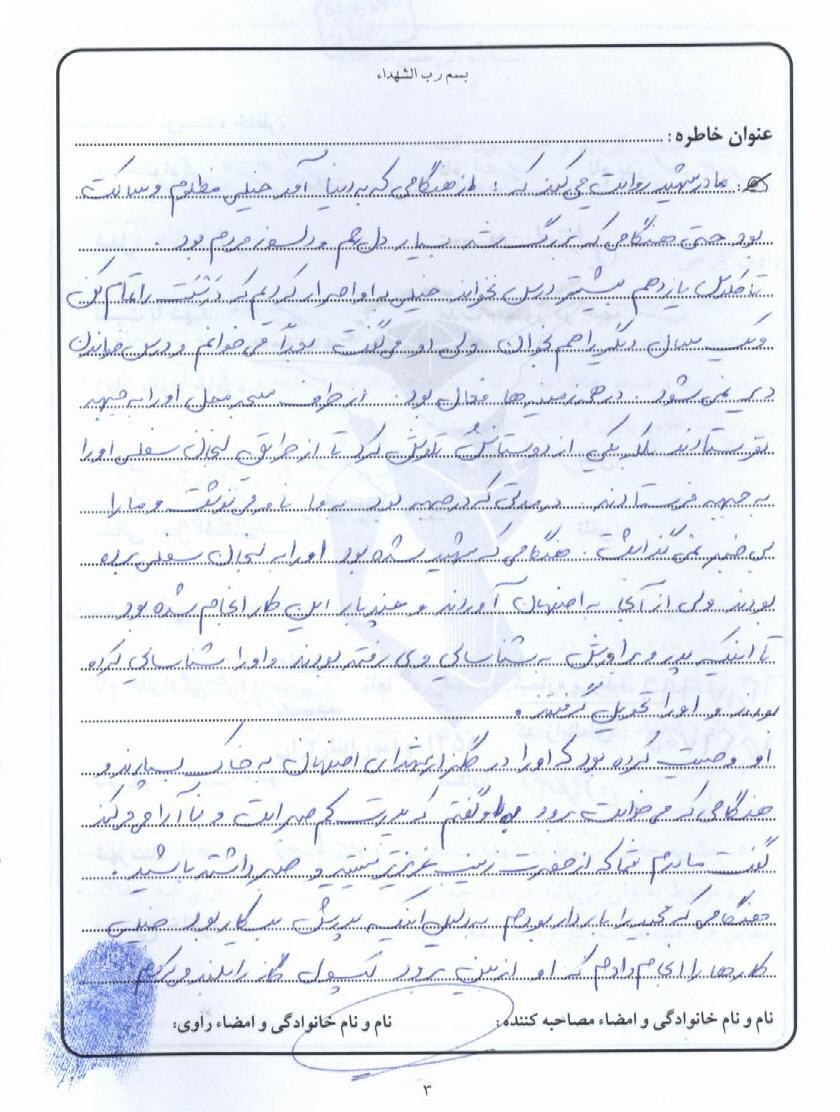 بسم رب الشهداء
عنوان خاطره:
مادر شهید روایت می کند که: از هنگامی که به دنیا آمد خیلی مظلوم و ساکت
بود حتی هنگامی که بزرگ شد بسیار دل رحم و دلسوز مردم بود.
تا کلاس یازدهم بیشتر درس نخواند خیلی به او اصرار کردیم که درست را تمام کن
و یک سال دیگر را هم بخوان ولی او می گفت بعداً می خوانم و درس خواندن
دیر نمی شود. در همه زمینه ها فعال بود. از طرف مسجد محل او را به جبهه
نفرستادند بلکه یکی از دوستانش تلاش کرد تا از طریق لنجان سفلی او را
به جبهه فرستادند. در مدتی که در جبهه بود به ما نامه می نوشت و ما را
بی خبر نمی گذاشت. هنگامی که شهید شده بود او را به لنجان سفلی برده
بودند ولی از آنجا به اصفهان آوردند و چند بار این کار انجام شده بود
تا اینکه پدر و برادرش به شناسایی وی رفته بودند و او را شناسایی کرده
بودند و او را تحویل گرفتند.
او وصیت کرده بود که او را در گلزار شهدای اصفهان به خاک بسپارند و
هنگامی که می خواست برود به او گفتم که پدرت کم صبر است و ناآرامی می کند
گفت مادرم شما که از حضرت زینب عزیزتر نیستید و صبر داشته باشید.
هنگامی که مجید را باردار بودم به دلیل اینکه پدرش بیکار بود خیلی
کارها را انجام دادم که او از بین برود کپسول گاز را بلند می کردم
نام و نام خانوادگی و امضاء مصاحبه کننده: نام و نام خانوادگی و امضاء راوی:
۳